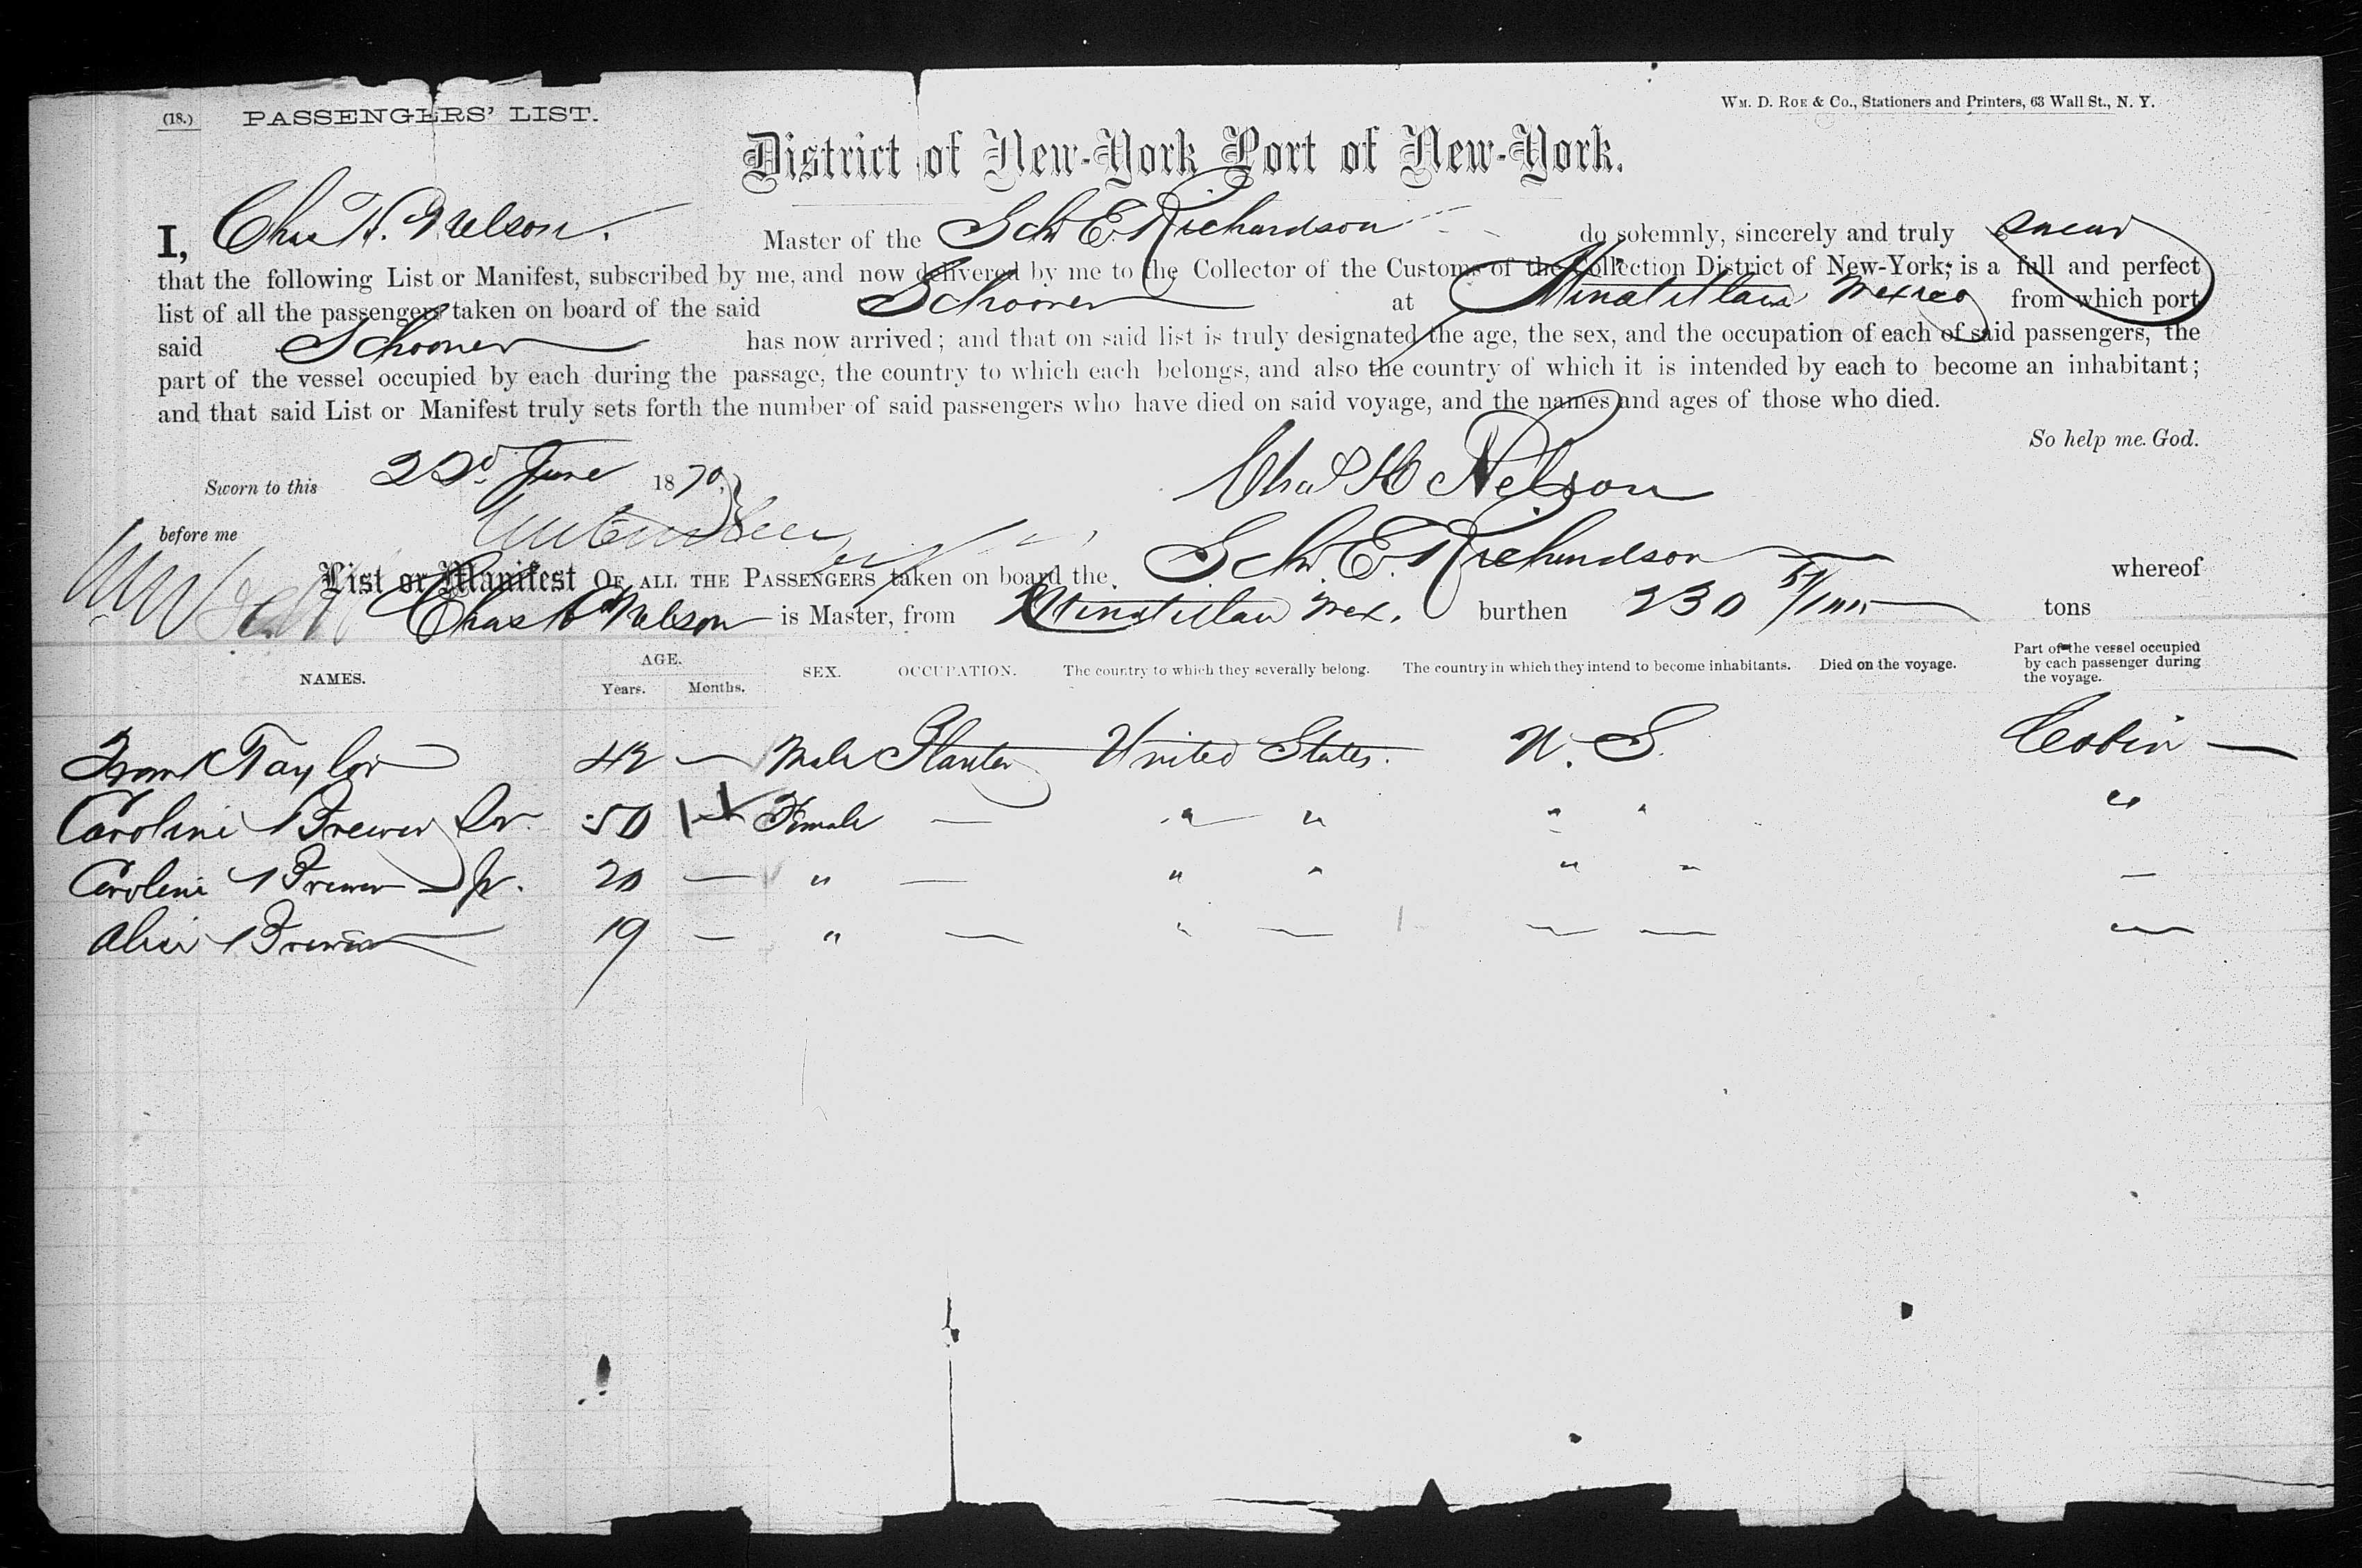 (18.) PASSENGERS' LIST. WM. D. ROE & Co., Stationers and Printers, 63 Wall St., N. Y.
District of New-York Port of New-York.
I, Chas H. Nelson. Master of the Schr E. Richardson do solemnly, sincerely and truly swear
that the following List or Manifest, subscribed by me, and now delivered by me to the Collector of the Customs of the Collection District of New-York; is a full and perfect
list of all the passengers taken on board of the said Schooner at Minatitlan Mexico from which port
said Schooner has now arrived; and that on said list is truly designated the age, the sex, and the occupation of each of said passengers, the
part of the vessel occupied by each during the passage, the country to which each belongs, and also the country of which it is intended by each to become an inhabitant;
and that said List or Manifest truly sets forth the number of said passengers who have died on said voyage, and the names and ages of those who died.
So help me God.
Sworn to this 22d June 1870, Chas H Nelson
before me
List or Manifest OF ALL THE PASSENGERS taken on board the Schr. E. Richardson whereof
Chas H Nelson is Master, from Minatitlan Mex. burthen 230 tons
NAMES. AGE. Years. Months. SEX. OCCUPATION. The country to which they severally belong. The country in which they intend to become inhabitants. Died on the voyage. Part of the vessel occupied by each passenger during the voyage.
Frank Taylor 42 — Male Planter United States. U. S. Cabin —
Caroline Brewer Sr. 50 Female — " " " " "
Caroline Brewer Jr. 20 — " — " " " " —
Alice Brewer 19 — " — " — — — —